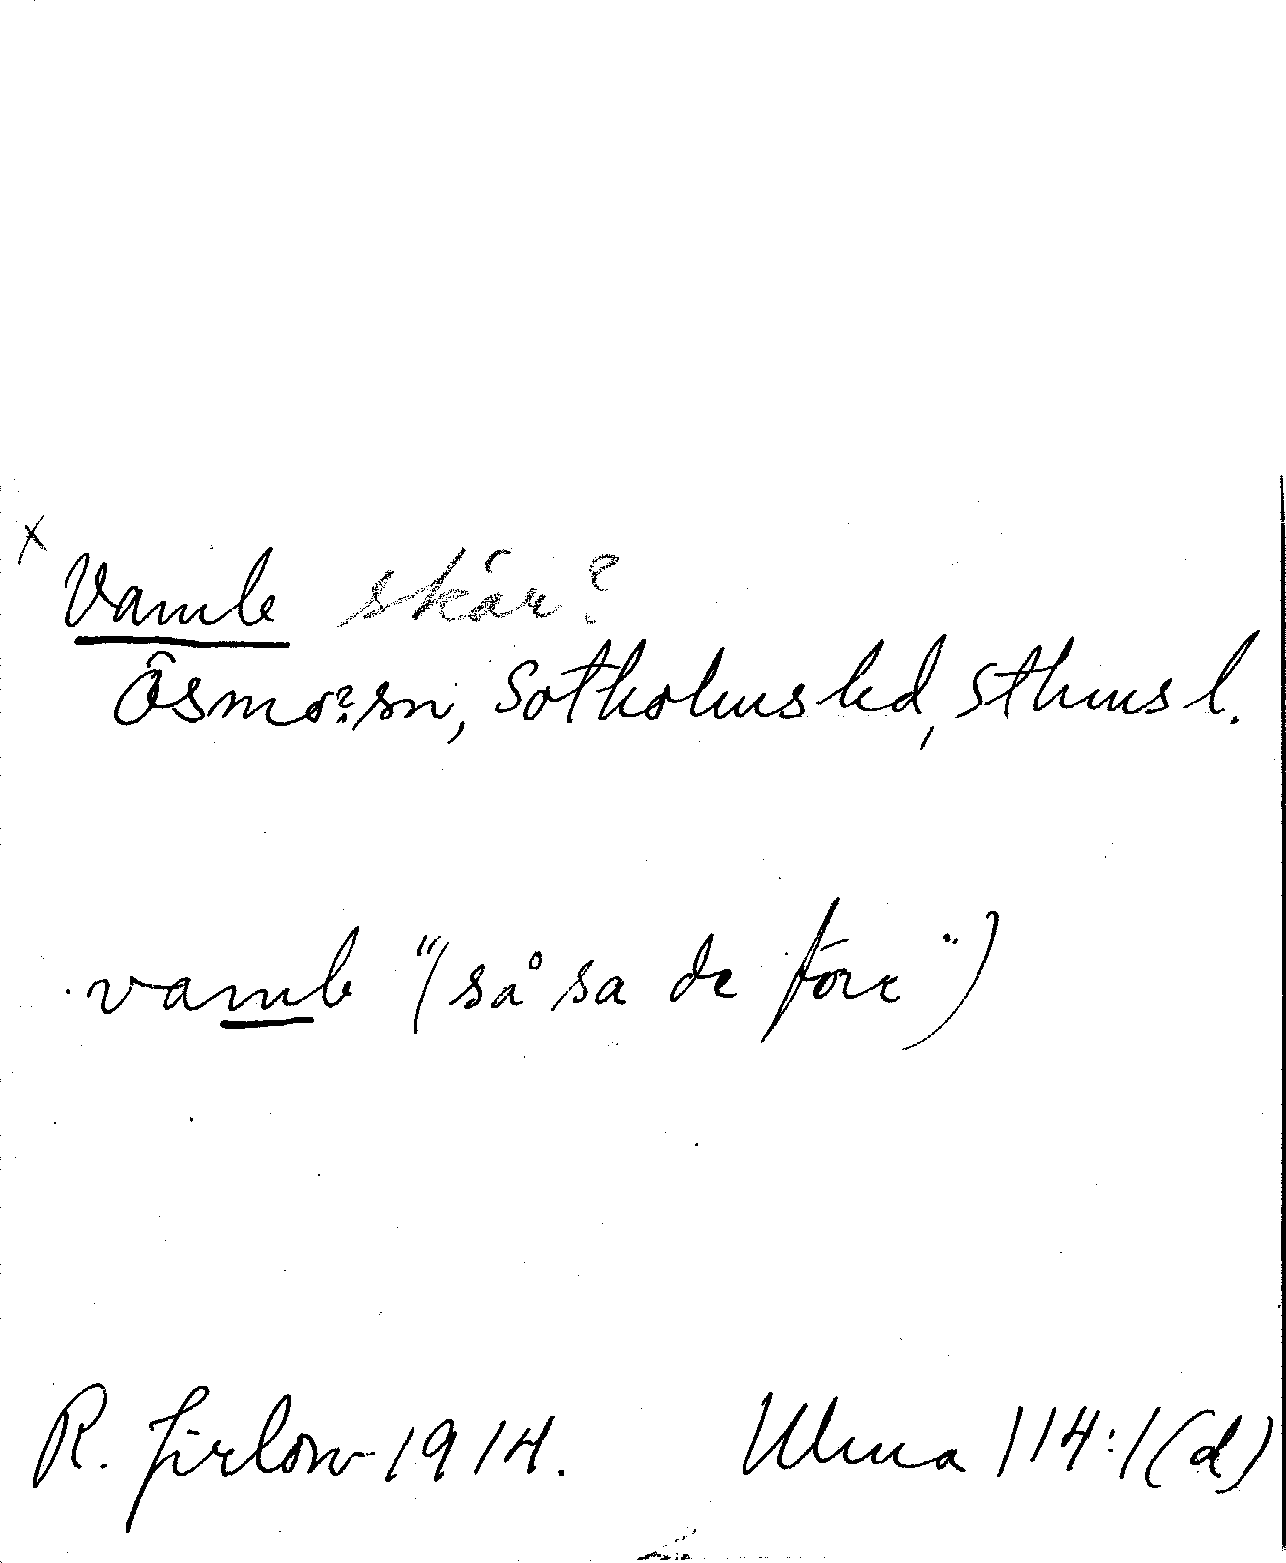 x
Vamle skär?
Ösmo? sn, Sotholms hd, Sthms l.
vamle "(så sa de förr")
R. Jirlow 1914. Ulma 114:1(d)